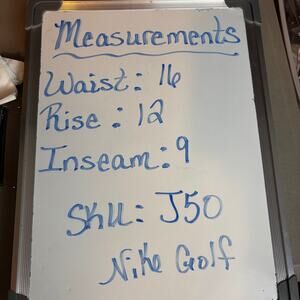 Measurements
Waist: 16
Rise: 12
Inseam: 9
SKU: J50
Nike Golf